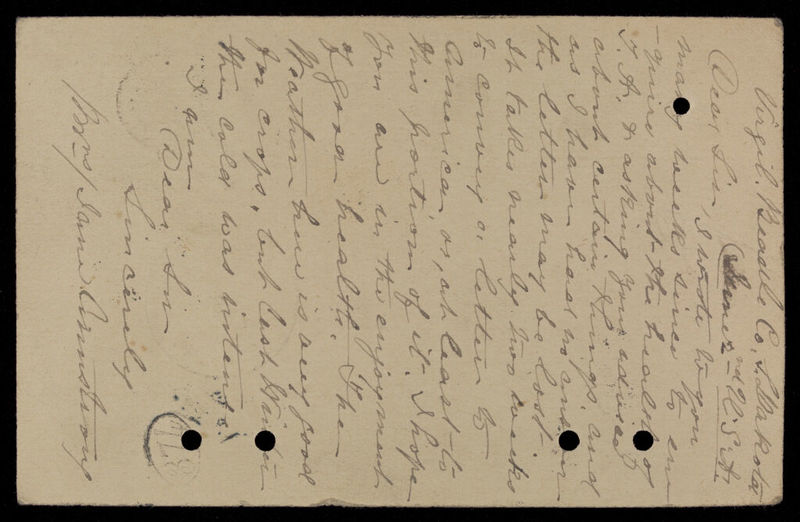 Virgil. Beadle Co, S. Dakota
June 2nd U.S.A.
Dear Sir, I wrote to you
many weeks since to en-
-quire about the health of
& asking your advice
about certain things, and
as I have had no answer
the letter may be lost.
It takes nearly two weeks
to convey a letter to
America, or, at least to
this portion of it. I hope
you are in the enjoyment
of good health. The
Weather here is very good
for crops, but last Winter
the cold was intense.
I am
Dear Sir
Sincerely
Jane Armstrong